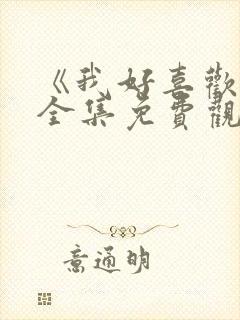 《我好喜歡
全集免費觀
意通明